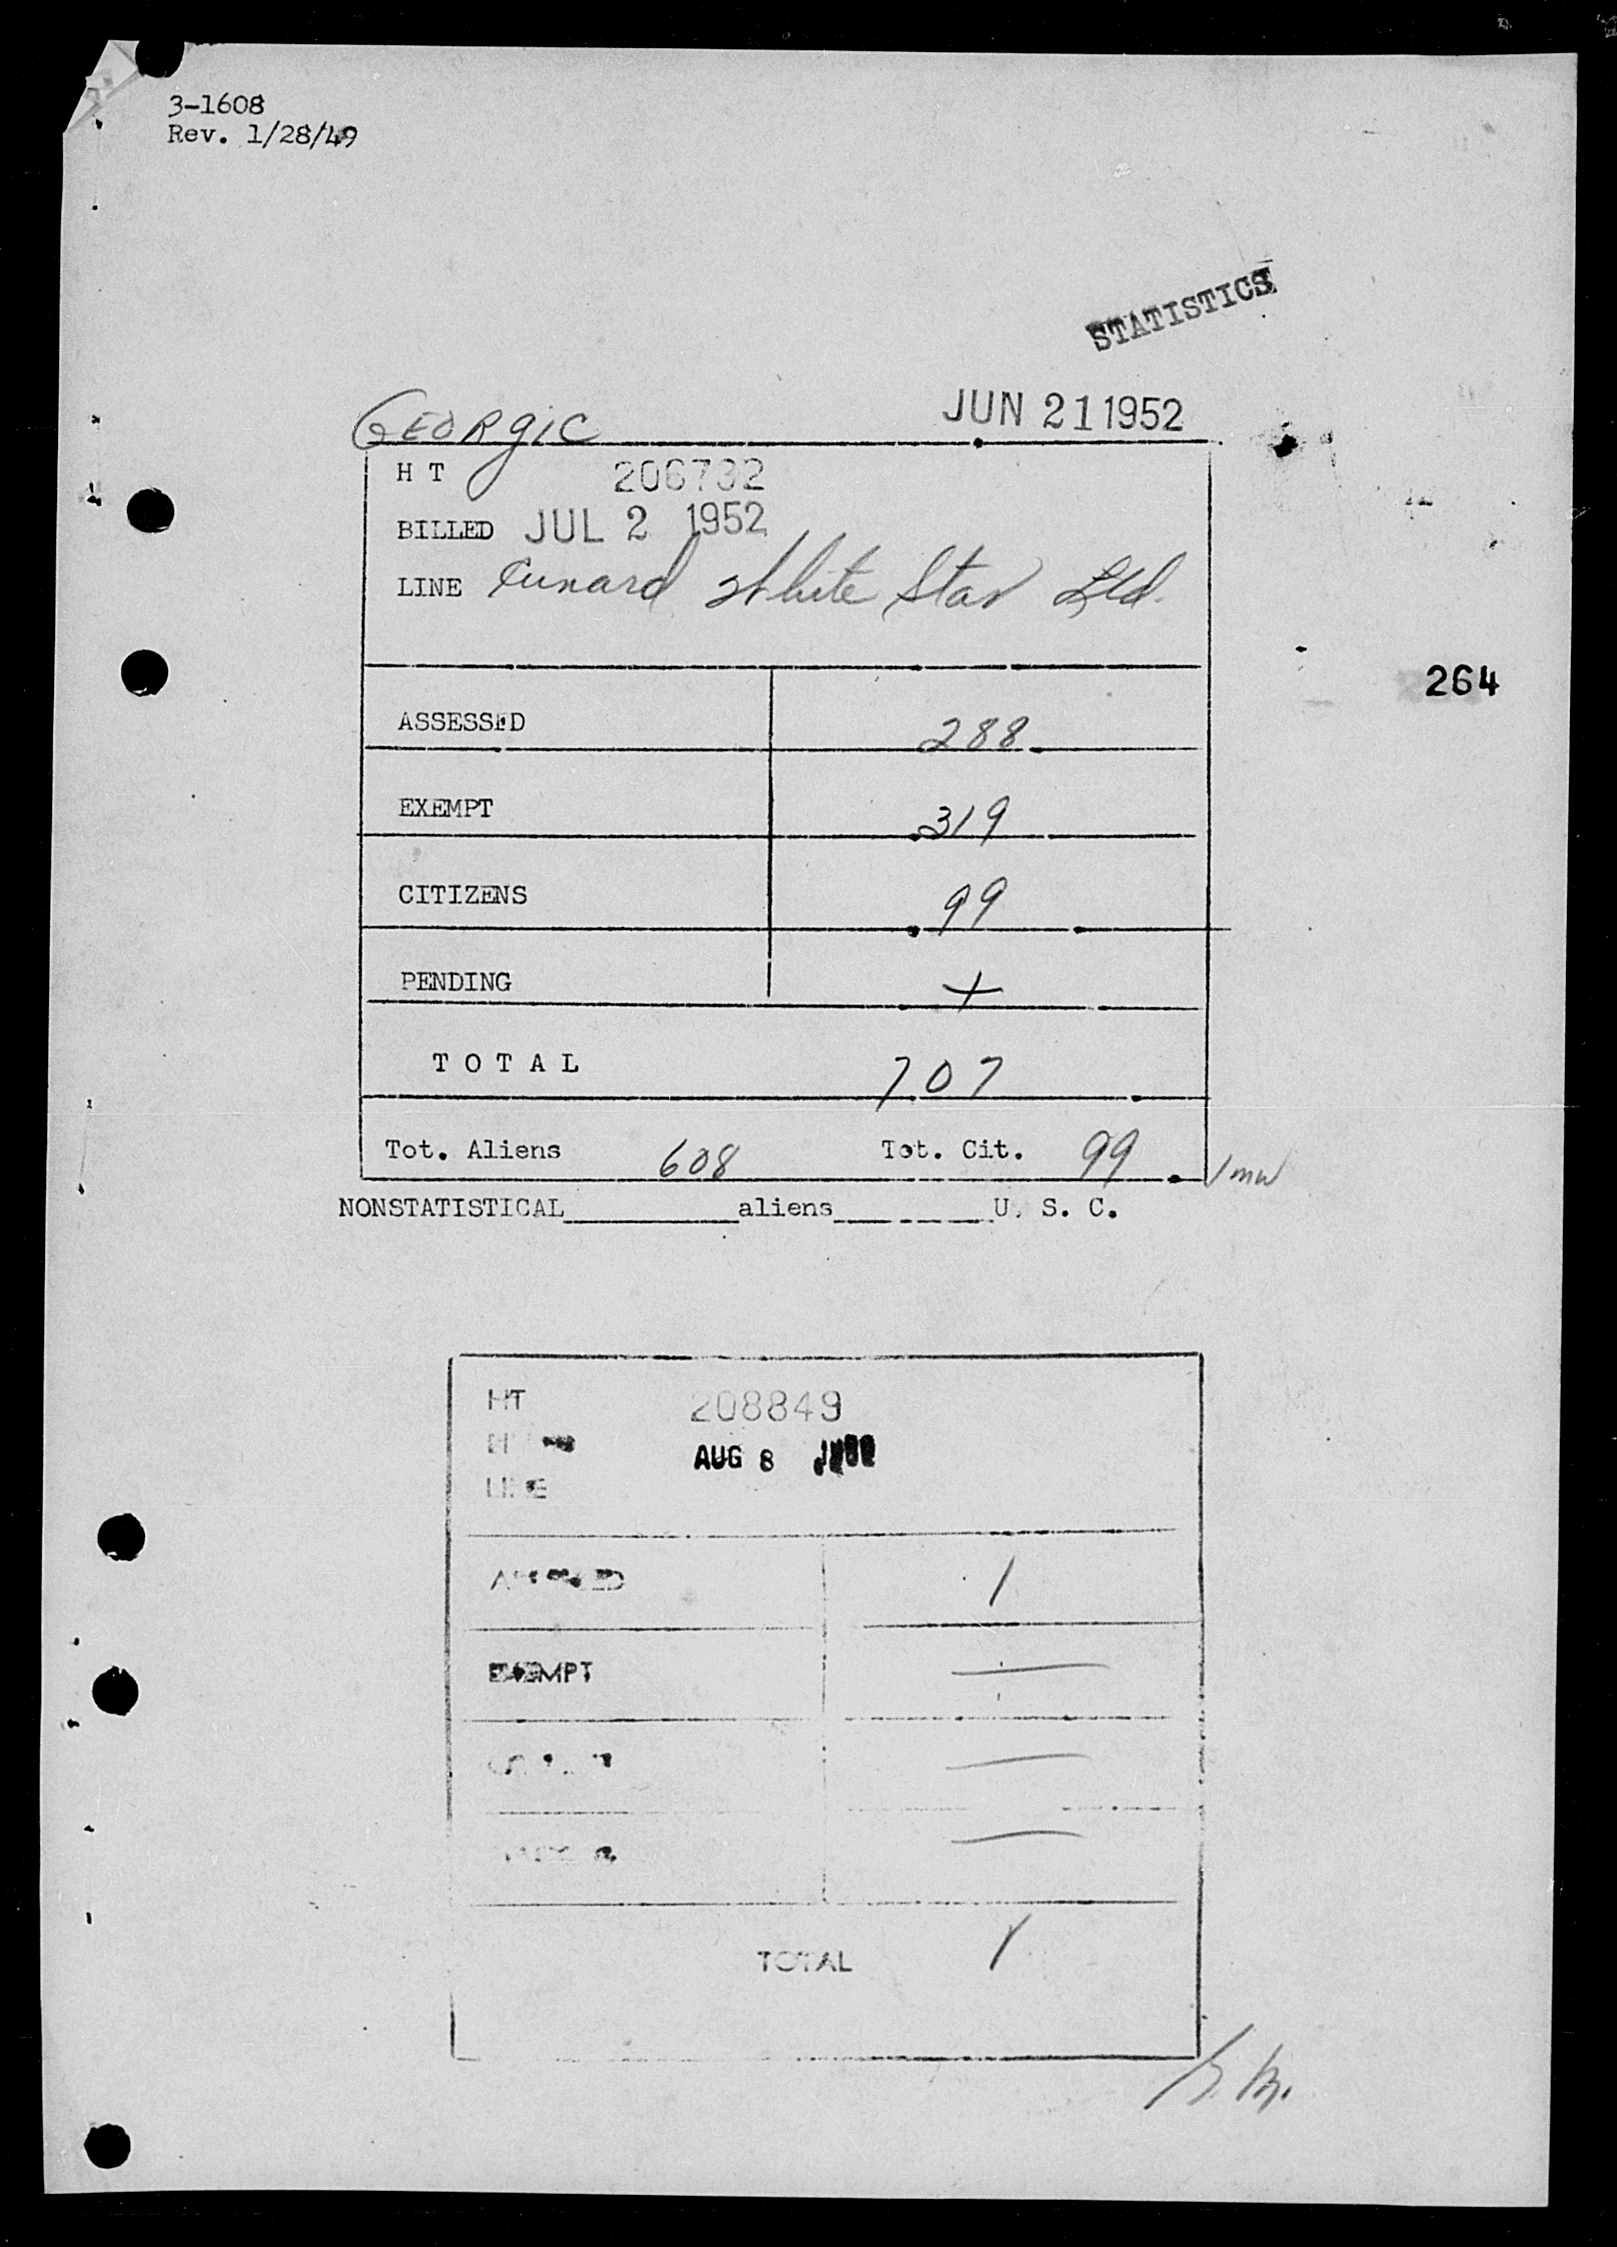 3-1608
Rev. 1/28/49
STATISTICS
GEORGIC JUN 21 1952
H T 206732
BILLED JUL 2 1952
LINE Cunard White Star Ltd.
264
ASSESSED 288
EXEMPT 319
CITIZENS 99
PENDING +
TOTAL 707
Tot. Aliens 608 Tot. Cit. 99
NONSTATISTICAL aliens U. S. C.
HT 208849
AUG 8
LINE
ASSESSED 1
EXEMPT —
—
—
TOTAL 1